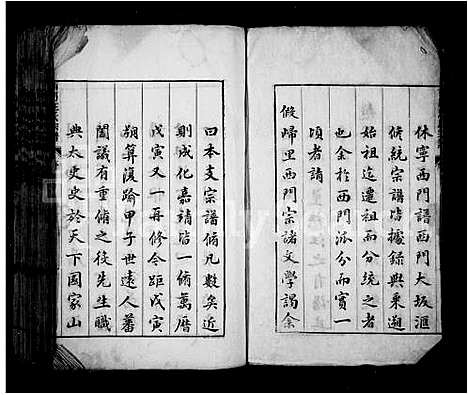 休寧西門譜西門大坂滙
脩統宗譜皆據錄與乘遡
始祖迄遷祖而分統之者
也余於西門派分而實一
頃者請
假歸里西門宗諸文學謁余
曰本支宗譜脩凡數矣近
則成化嘉靖皆一脩萬曆
戊寅又一再修今距戊寅
朔算復踰甲子世遠人蕃
闔議有重脩之役先生職
典太史史於天下國家山